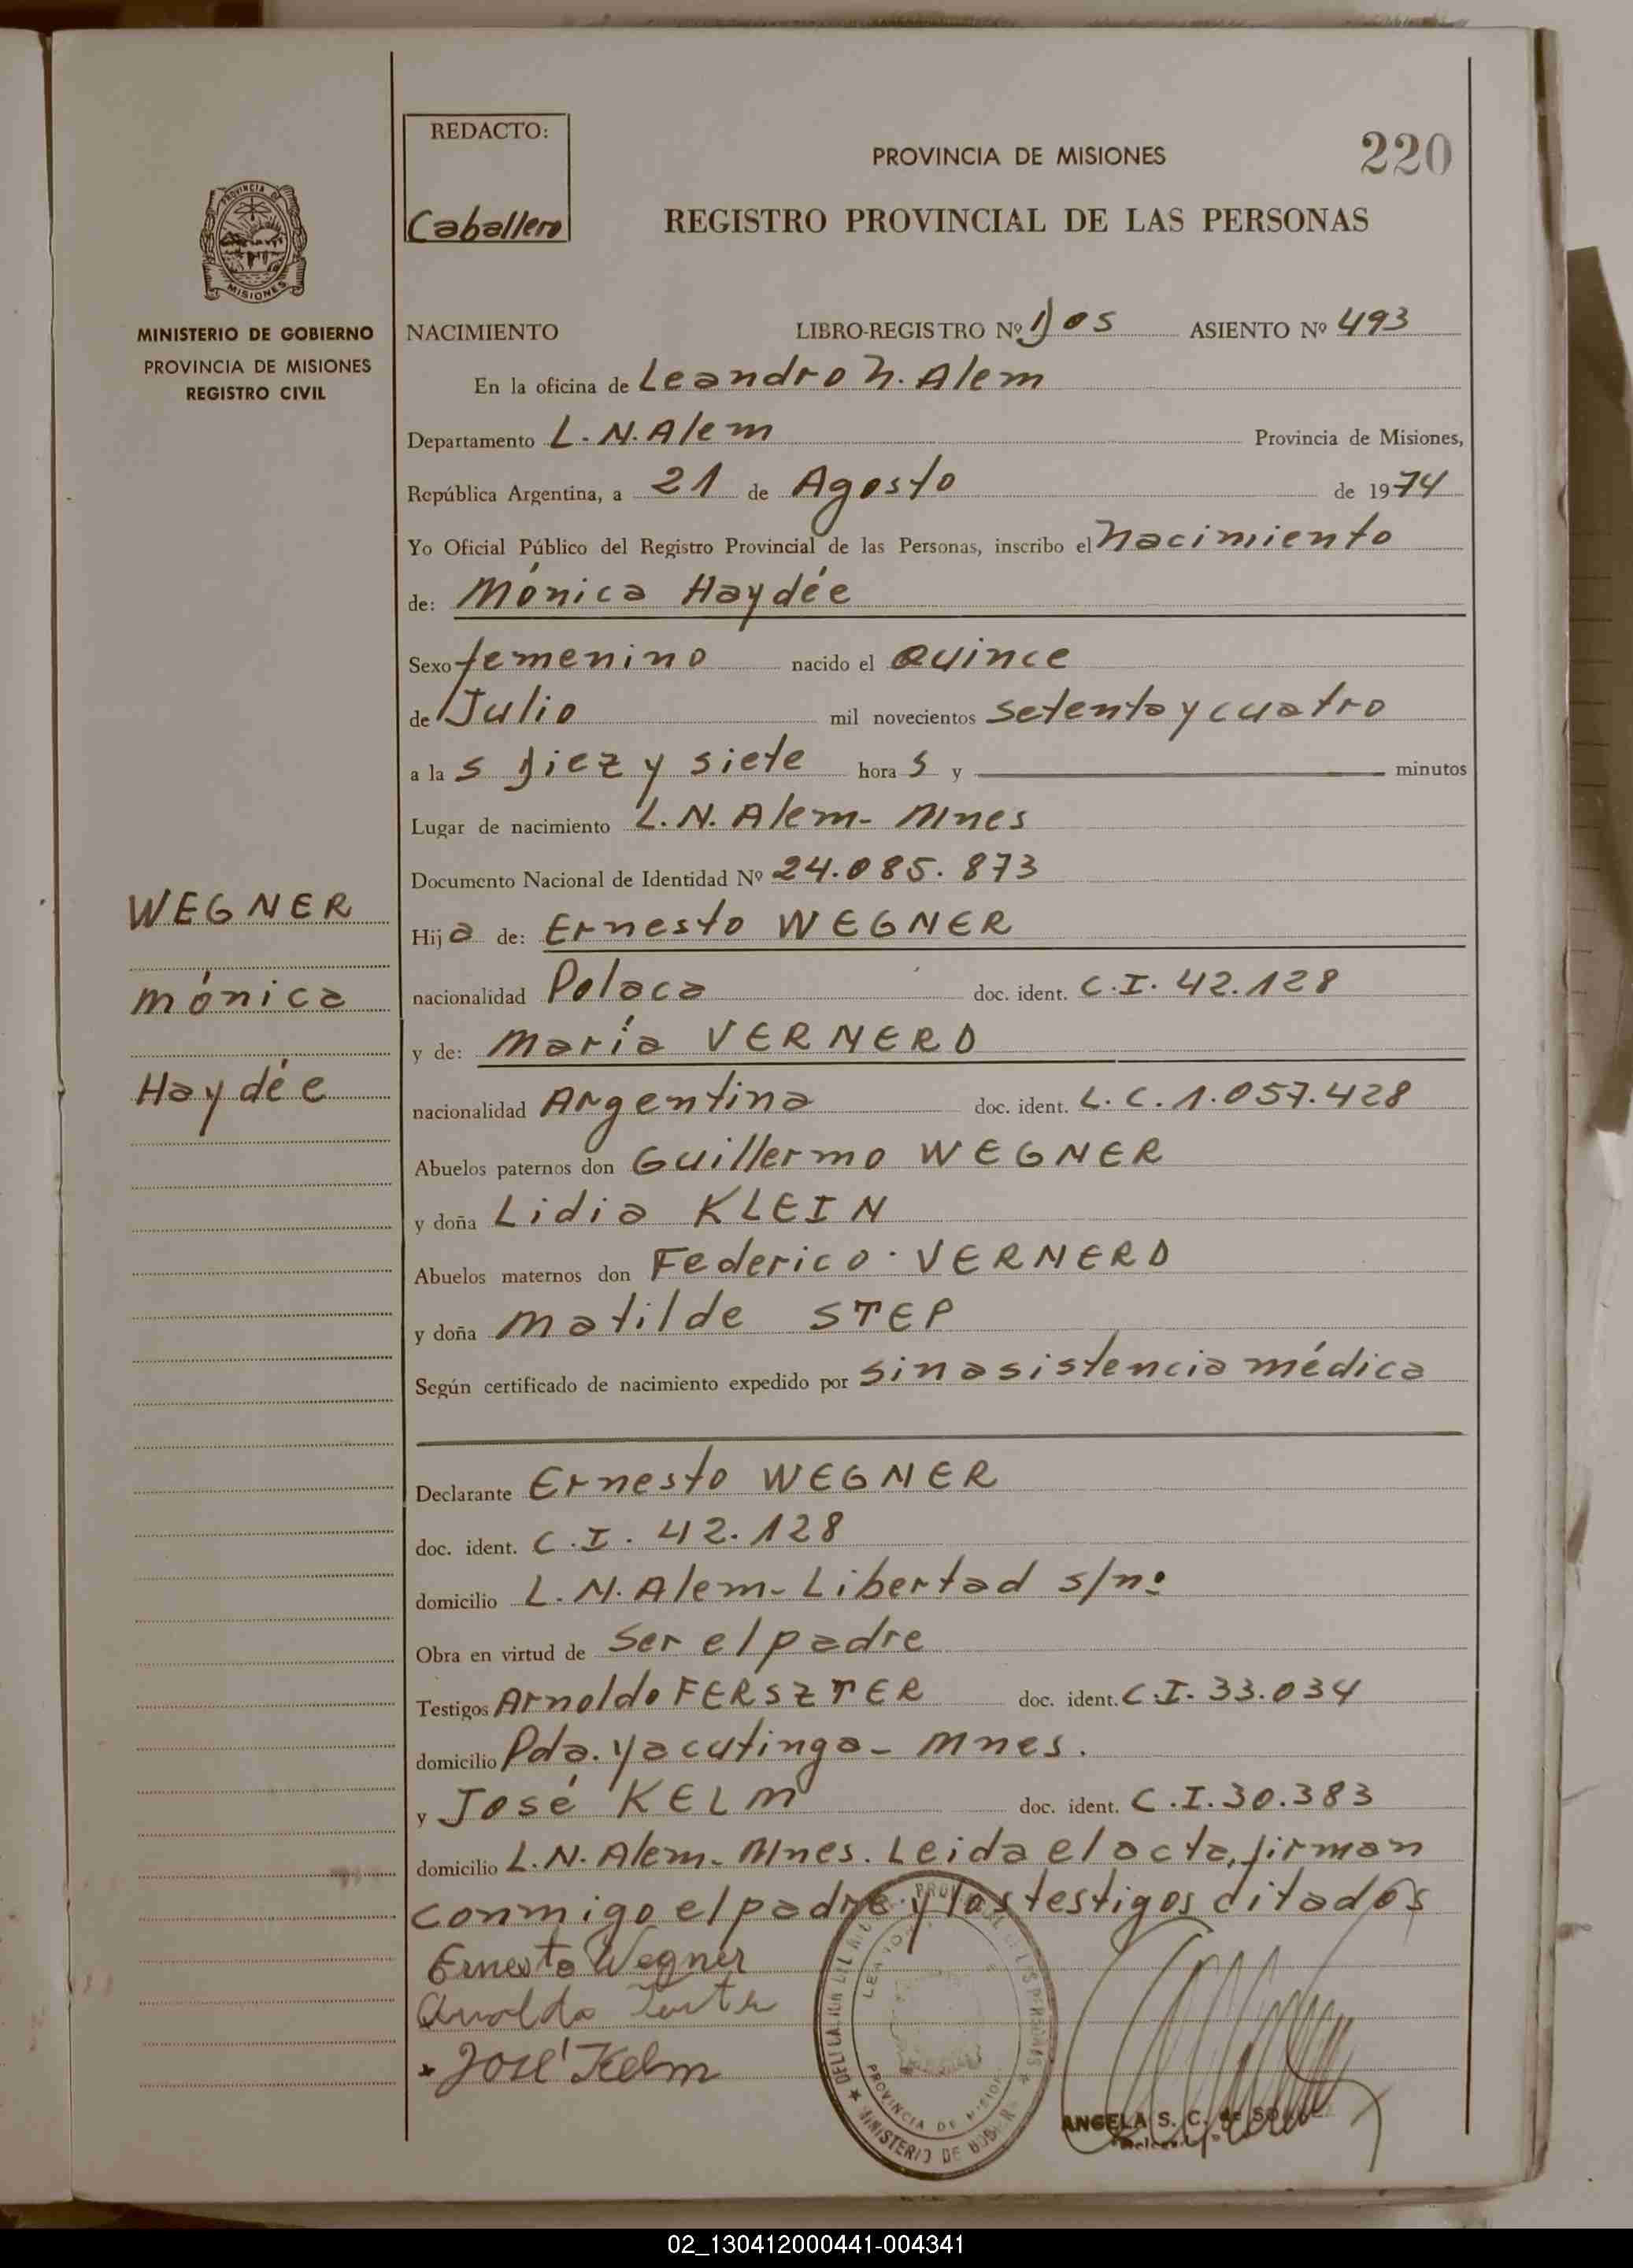 REDACTO:
Caballero
PROVINCIA DE MISIONES
220
REGISTRO PROVINCIAL DE LAS PERSONAS
PROVINCIA DE
MISIONES
MINISTERIO DE GOBIERNO
PROVINCIA DE MISIONES
REGISTRO CIVIL
NACIMIENTO LIBRO-REGISTRO Nº Dos ASIENTO Nº 493
En la oficina de Leandro N. Alem
Departamento L. N. Alem Provincia de Misiones,
República Argentina, a 21 de Agosto de 1974
Yo Oficial Público del Registro Provincial de las Personas, inscribo el Nacimiento
de: Mónica Haydée
Sexo femenino nacido el Quince
de Julio mil novecientos setenta y cuatro
a la s Diez y siete hora s y minutos
Lugar de nacimiento L. N. Alem - Mnes
Documento Nacional de Identidad Nº 24.085.873
WEGNER
Mónica
Haydée
Hij a de: Ernesto WEGNER
nacionalidad Polaca doc. ident. C.I. 42.128
y de: María VERNERD
nacionalidad Argentina doc. ident. L.C. 1.057.428
Abuelos paternos don Guillermo WEGNER
y doña Lidia KLEIN
Abuelos maternos don Federico VERNERD
y doña Matilde STEP
Según certificado de nacimiento expedido por sin asistencia médica
Declarante Ernesto WEGNER
doc. ident. C.I. 42.128
domicilio L. N. Alem - Libertad s/nº
Obra en virtud de ser el padre
Testigos Arnoldo FERSZTER doc. ident. C.I. 33.034
domicilio Pda. Yacutinga - Mnes.
y José KELM doc. ident. C.I. 30.383
domicilio L. N. Alem - Mnes. Leida el acta, firman
conmigo el padre y los testigos citados
Ernesto Wegner
Arnoldo
José Kelm
PROVINCIA DE MISIONES
MINISTERIO DE
ANGELA S. C. de
02_130412000441-004341